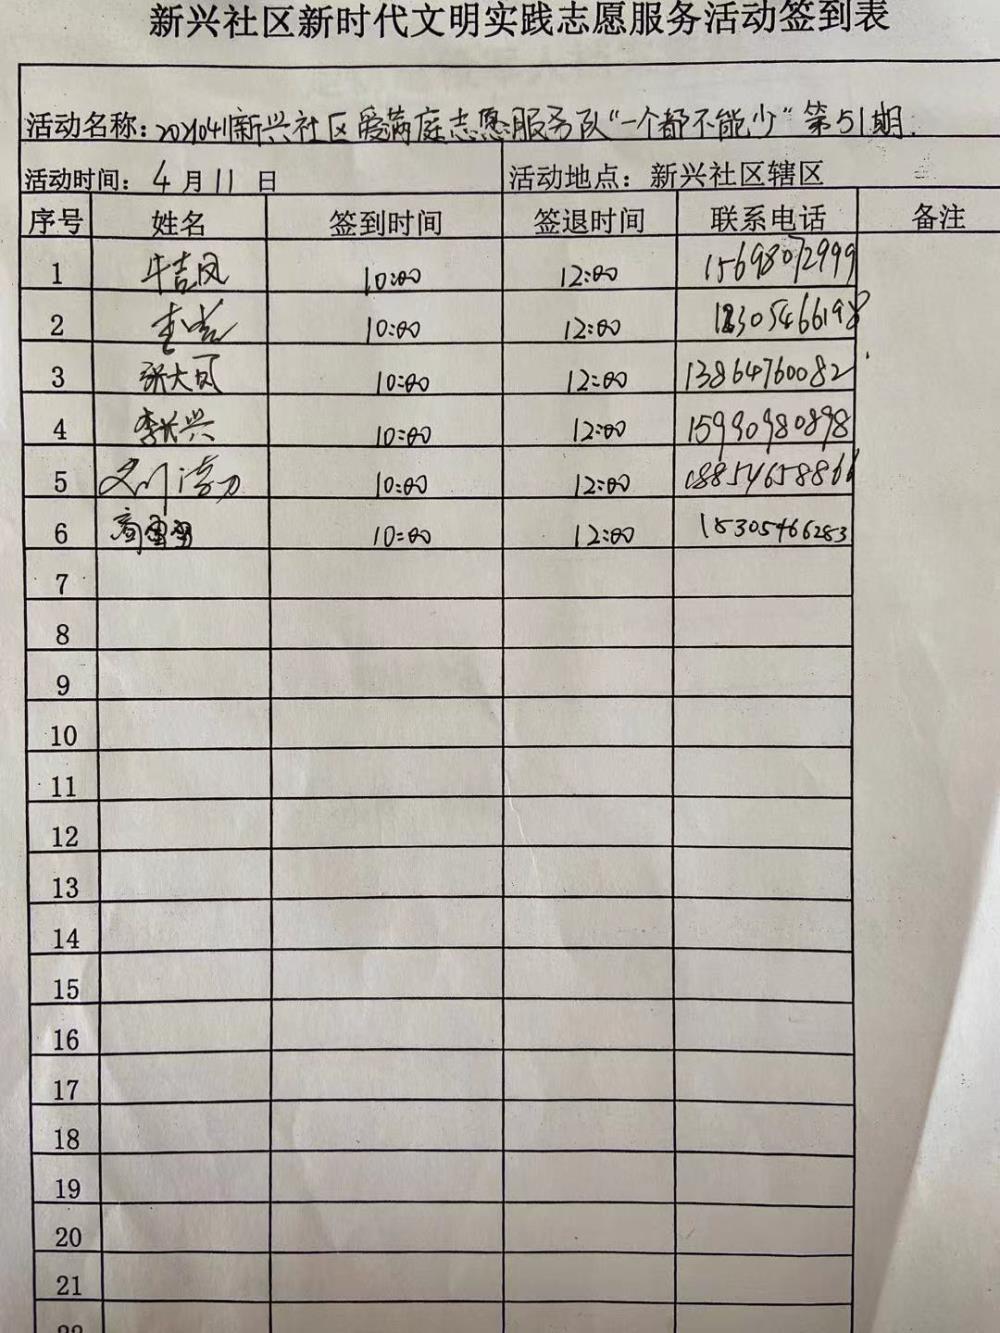 新兴社区新时代文明实践志愿服务活动签到表
活动名称：20210411新兴社区爱满庭志愿服务队“一个都不能少”第51期.
活动时间：4月11日 活动地点：新兴社区辖区
序号 姓名 签到时间 签退时间 联系电话 备注
1 牛吉凤 10:00 12:00 15698072999
2 10:00 12:00
3 张大凤 10:00 12:00 13864760082
4 李长兴 10:00 12:00 15990980898
5 10:00 12:00 18854658866
6 10:00 12:00 18305466283
7
8
9
10
11
12
13
14
15
16
17
18
19
20
21
22